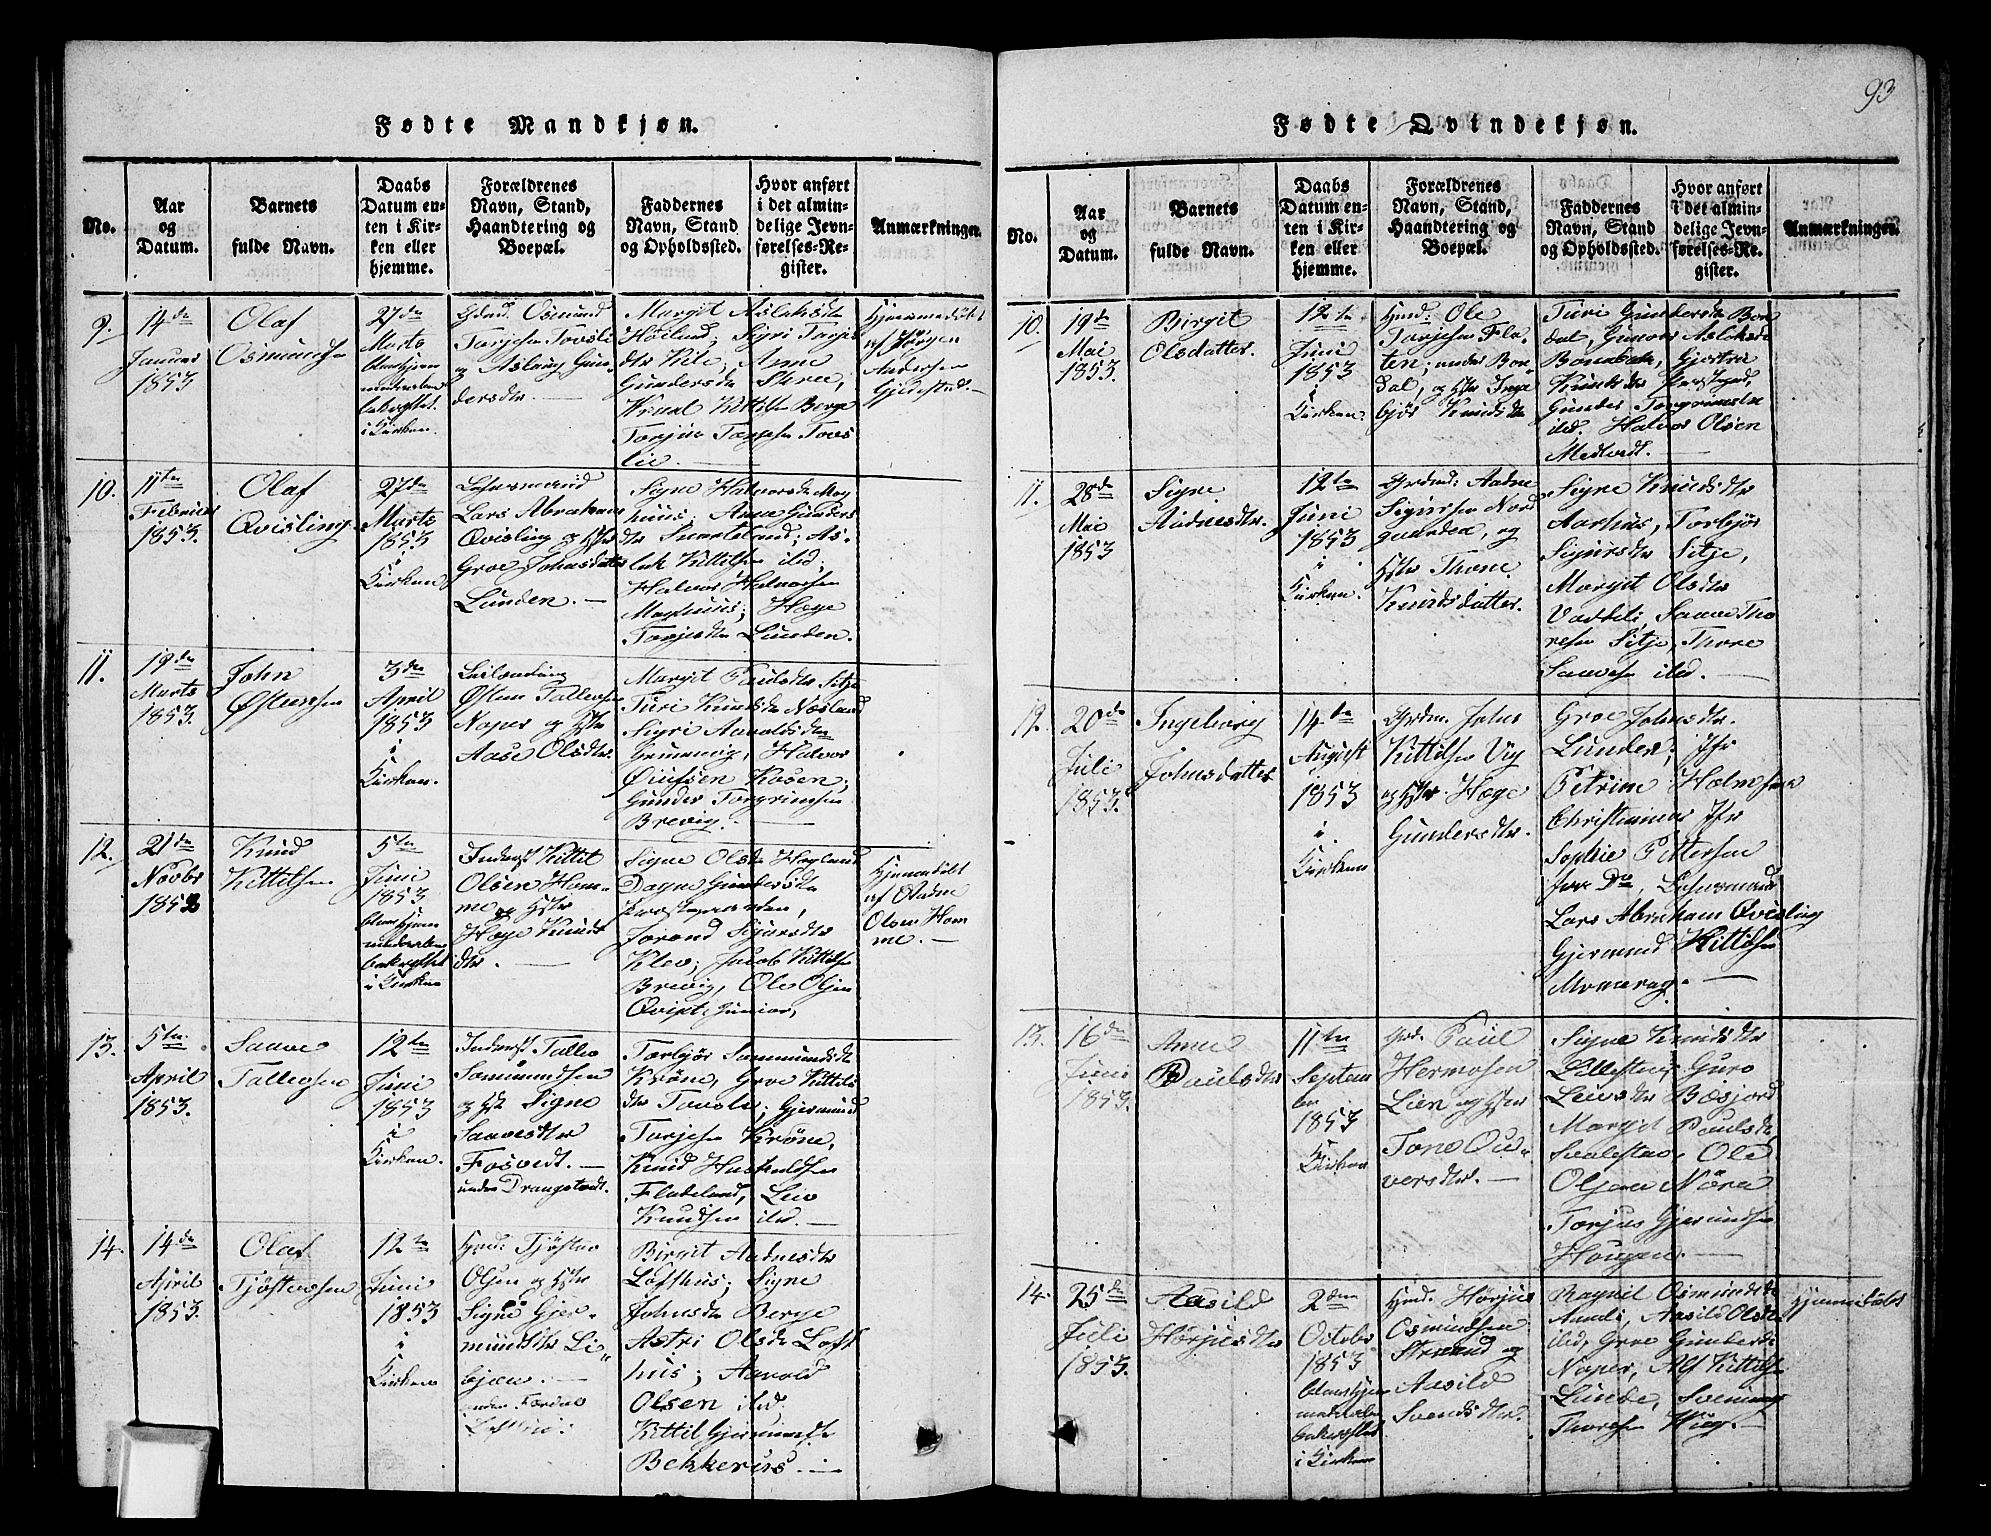 93
Fødte Mandkjøn.
No.
Aar
og
Datum.
Barnets
fulde Navn.
Daabs
Datum en-
ten i Kir-
ken eller
hjemme.
Forældrenes
Navn, Stand,
Haandtering og
Boepæl.
Faddernes
Navn, Stand
og Opholdssted.
Hvor anført
i det almin-
delige Jevn-
førelses-Re-
gister.
Anmærkninger.
9.
14de
Januar
1853
Olaf
Osmundsen
27de
Marts
i Kirken.
Osmund
Torjesen Tovsli
og Aslaug Gun-
dersdtr.
Margit Aslaksdtr
Høilund; Sigri Torjes
dtr Kile; Anne
Gundersdtr Skree;
Knud Kittilsen Berge
Torjus Torjesen Tovs
lie.
Hjemmedøbt
af Jørgen
Andersen
10.
11te
Februar
1853.
Olaf
Qvisling.
27de
Marts
1853
i
Kirken
Lensmand
Lars Abraham
Qvisling og Hstr
Groe Johnsdatter
Lunden.
Signe Halvorsdtr Mog
huus; Anne Gunders
dtr Svartelund; As-
lak Kittilsen ibd.
Halvor Halvorsen
Moghuus; Hæge
Torjesdtr Lunden.
11.
19de
Marts
1853.
John
Østensen
3de
April
1853
i
Kirken.
Leilænding
Østen Tallevsen
Naper og Hstr
Aase Olsdtr.
Margit Paulsdtr Sitje
Turi Knudsdtr Næsland
Sigri Aavoldsdtr
Halvor
Kosen;
Gunder Torgrimsen
Brevig.
12.
21de
Novbr
1852
Knud
Kittilsen
5te
Juni
1853
i Kirken
Inderst Kittil
Olsen Hom-
me og Hstr
Hæge Knuds
dtr.
Signe Olsdtr Høglund
Dagne Gundersdtr
Jorand Sjursdtr
Klev; Jacob Kittilsen
Brevig, Ole Olsen
Qvipt, junior,
Hjemmedøbt
af Aadne
Olsen Hom
me.
13.
5te
April
1853.
Saave
Tallevsen
12te
Juni
1853
i
Kirken.
Inderst Tallev
Sammundsen
og Hstr Signe
Saavesdtr
Fosvedt.
under Drangstvedt.
Torbjør Sammundsdtr
Krone, Groe Kittils
dtr Tovsli; Gjermund
Torjesen Krone,
Knud
Fladeland, Lev
Knudsen ibd.
14.
14de
April
1853.
Olaf
Tjøstovsen
12te
Juni
1853
i
Kirken
Hmd. Tjøstov
Olsen og Hstr
Signe Gjer-
mundsdtr Li-
bjøn.
Birgit Aadnesdtr
Lofthus; Signe
Johnsdtr Berge
Astri Olsdtr Loft
hus; Aavold
Olsen ibd.
Kittil Gjermundsen
Bekkerus.
Fødte Qvindekjøn.
No.
Aar
og
Datum.
Barnets
fulde Navn.
Daabs
Datum en-
ten i Kir-
ken eller
hjemme.
Forældrenes
Navn, Stand,
Haandtering og
Boepæl.
Faddernes
Navn, Stand
og Opholdssted.
Hvor anført
i det almin-
delige Jevn-
førelses-Re-
gister.
Anmærkninger.
10.
19de
Mai
1853.
Birgit
Olsdatter.
12te
Juni
1853
i
Kirken.
Hmd: Ole
Torjesen Fla-
ten; under Bon-
dal, og Hstr Inge
bjør Knudsdtr
Turi Gundersdtr Bon
dal, Gunvor Aslaksdtr
Knudsdtr
Gunder Torgrimsen
ibd. Halvor Olsen
Medtvedt.
11.
28de
Mai
1853
Signe
Aadnesdtr.
12te
Juni
1853
i
Kirken.
Grdmd: Aadne
Sigursen Nord
gaarden, og
Hstr Thone
Knudsdatter.
Signe Knudsdtr
Aarhus, Torbjør
Sigursdtr Sitje,
Margit Olsdtr
Vadbeli, Saave Tho
resen Sitje, Thore
Saavesen ibd.
12.
20de
Juli
1853.
Ingeborg
Johnsdatter
14de
August
1853
i
Kirken
Grdm. John
Kittilsen Vig
og Hstr. Hæge
Gundersdtr.
Groe Johnsdtr.
Lunden; Jfr
Petrine Holmsen
Christiania Jfr
Sophie Pettersen
fra Do, Lensmand
Lars Abraham Qvisling
Gjermund Kittilsen
Momrag.
13.
16de
Juni
1853.
Anne
Paulsdtr
11te
Septem
ber
1853
i Kirken
Grd. Paul
Hermosen
Lien og Hstr
Tone Ou-
versdtr.
Signe Knudsdtr
Guro
Leivsdtr Bæsjord
Margit Paulsdtr
Ole
Olsen Nöra
Torjus Gjermundsen
Hougen.
14.
25de
Juli
1853.
Aasild
Horjusdtr
2den
Octobr
1853
i Kirken
Hmd. Horjus
Osmundsen
Strand og
Aasild
Svendsdtr.
Ragnil Osmundsdtr
Aasild Olsdtr
ibd, Groe Gundersdtr
Naper, Alf Kittilsen
Lunde, Svenung
Thoresen Vig.
Hjemmedøbt